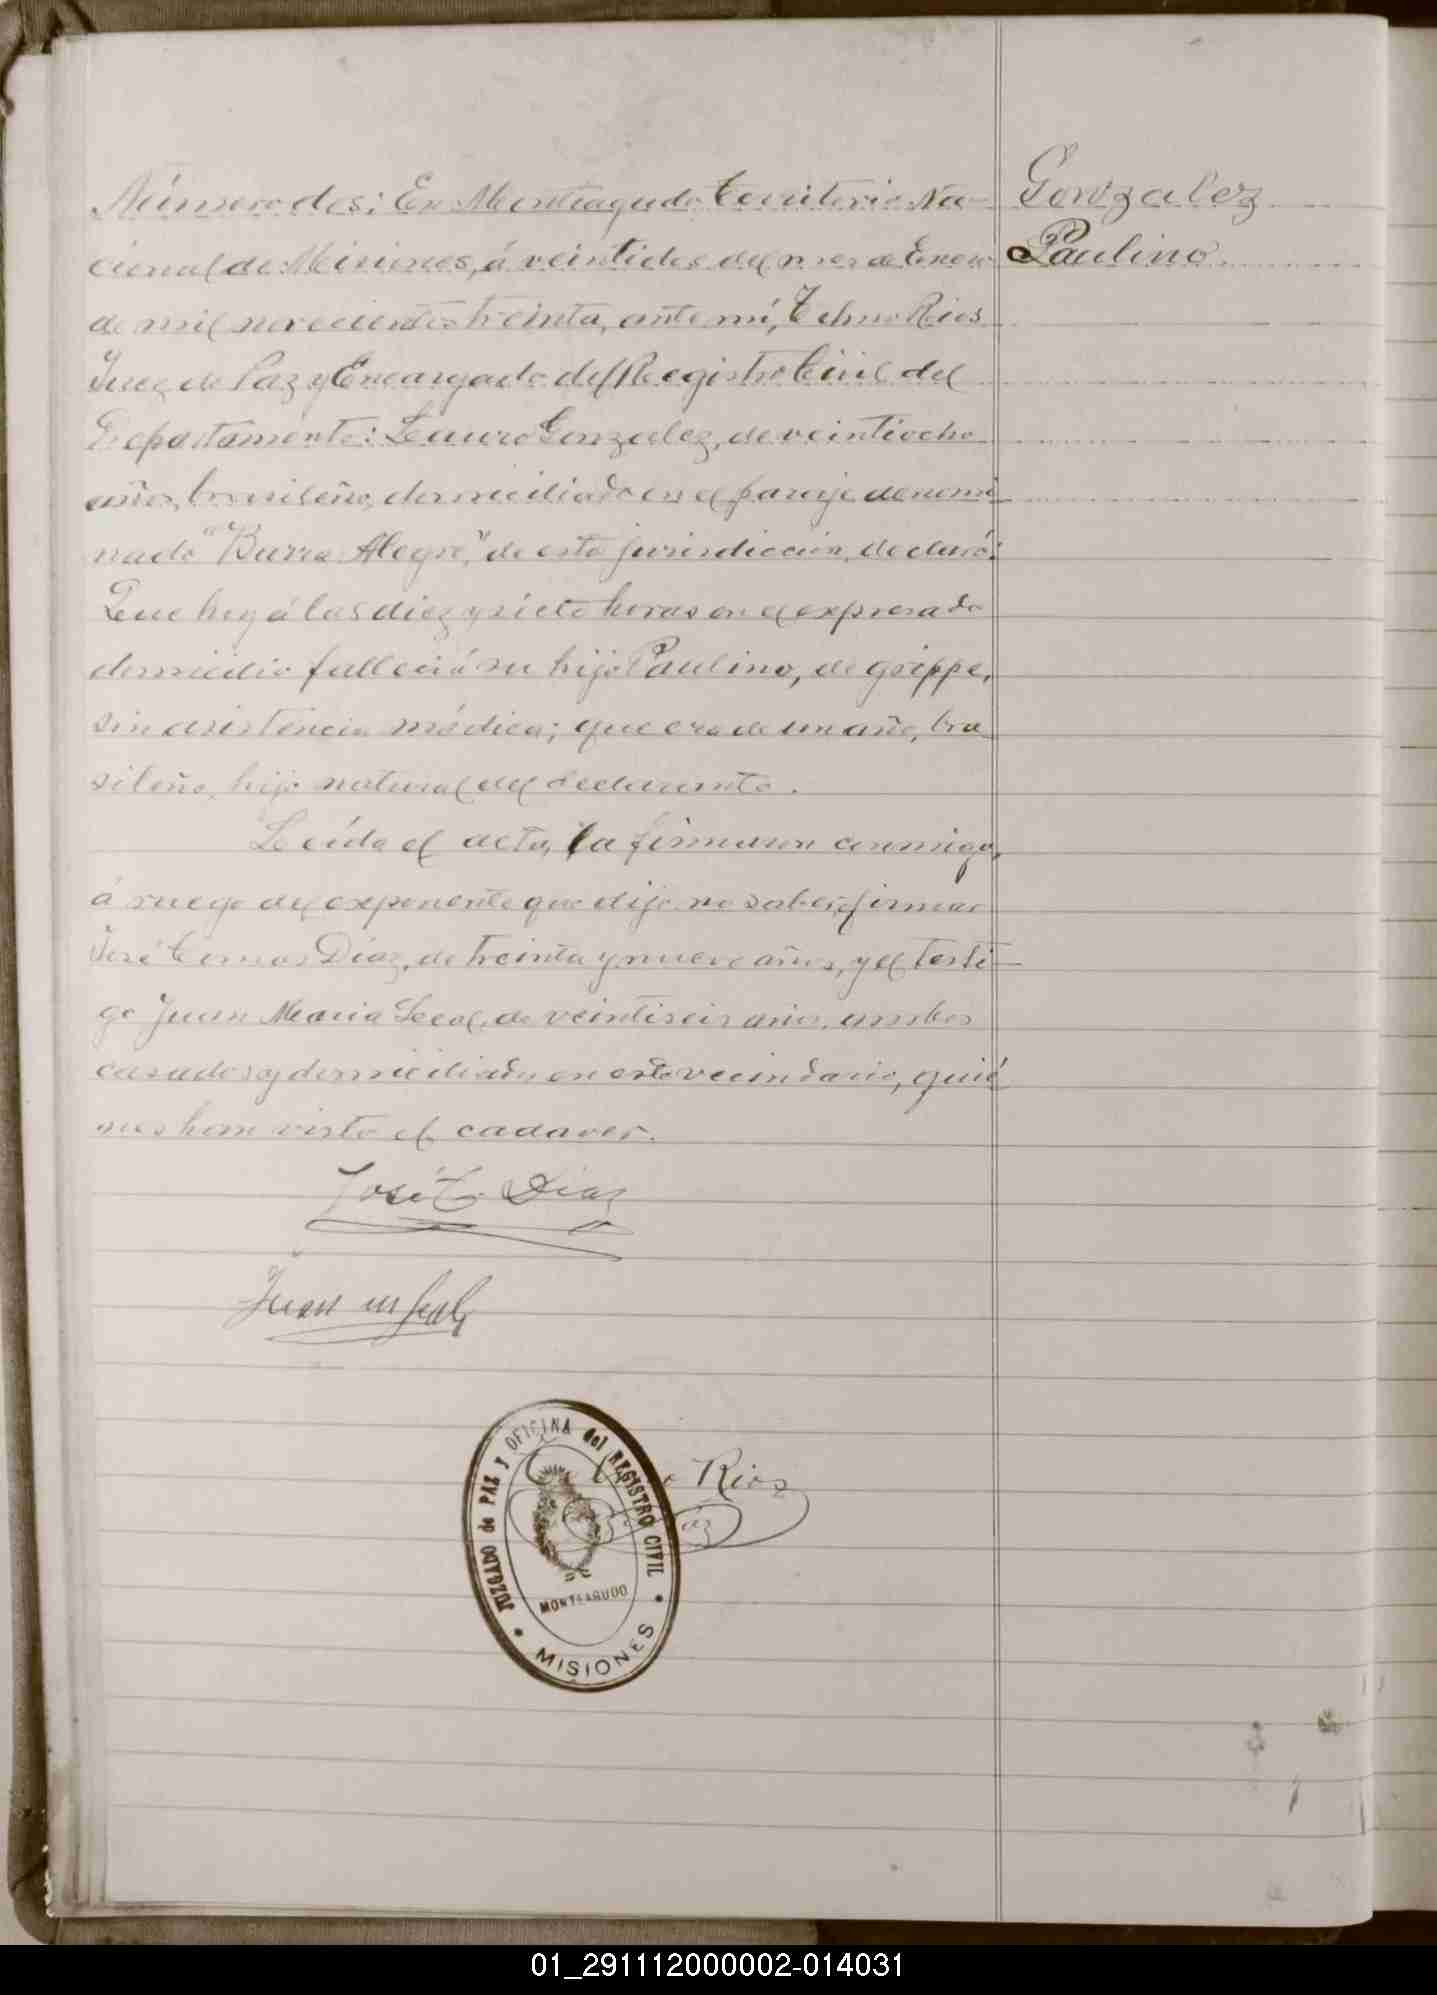 Gonzalez
Paulino.
Número dos: En Monteagudo Territorio Na-
cional de Misiones, á veintidos del mes de Enero
de mil novecientos treinta, ante mí, Telmo Rios
Juez de Paz y Encargado del Registro Civil del
Departamento: Lauro Gonzalez, de veintiocho
años, brasileño, domiciliado en el paraje denomi
nado "Barra Alegre," de esta jurisdicción, declaró:
Que hoy á las diez y siete horas en el expresado
domicilio falleció su hijo Paulino, de grippe,
sin asistencia médica; que era de un año, bra
sileño, hijo natural del declarante.
Leída el acta, la firmaron conmigo,
á ruego del exponente que dijo no saber firmar
José Tomas Díaz, de treinta y nueve años, y el testi-
go Juan Maria Leal, de veintiseis años, ambos
casados y domiciliados en este vecindario, quié
nes han visto el cadaver.
José T. Díaz
Juan m Leal
Rios
JUZGADO de PAZ y OFICINA del REGISTRO CIVIL
MONTEAGUDO
• MISIONES •
01_291112000002-014031